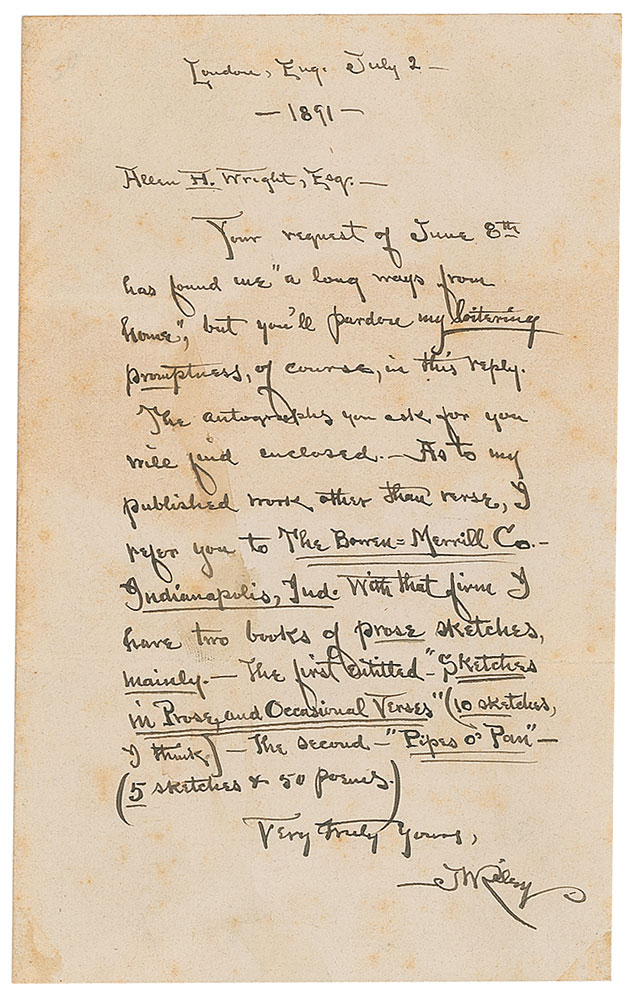 London, Eng. July 2 —
— 1891 —
Allen H. Wright, Esq. —
Your request of June 8th
has found me "a long ways from
home", but you'll pardon my loitering
promptness, of course, in this reply.
The autographs you ask for you
will find enclosed. — As to my
published work other than verse, I
refer you to The Bowen=Merrill Co. —
Indianapolis, Ind. With that firm I
have two books of prose sketches,
mainly. — The first entitled — "Sketches
in Prose, and Occasional Verses" (10 sketches,
I think) — The second — "Pipes o' Pan" —
(5 sketches & 50 poems.)
Very Truly Yours,
— JW Riley